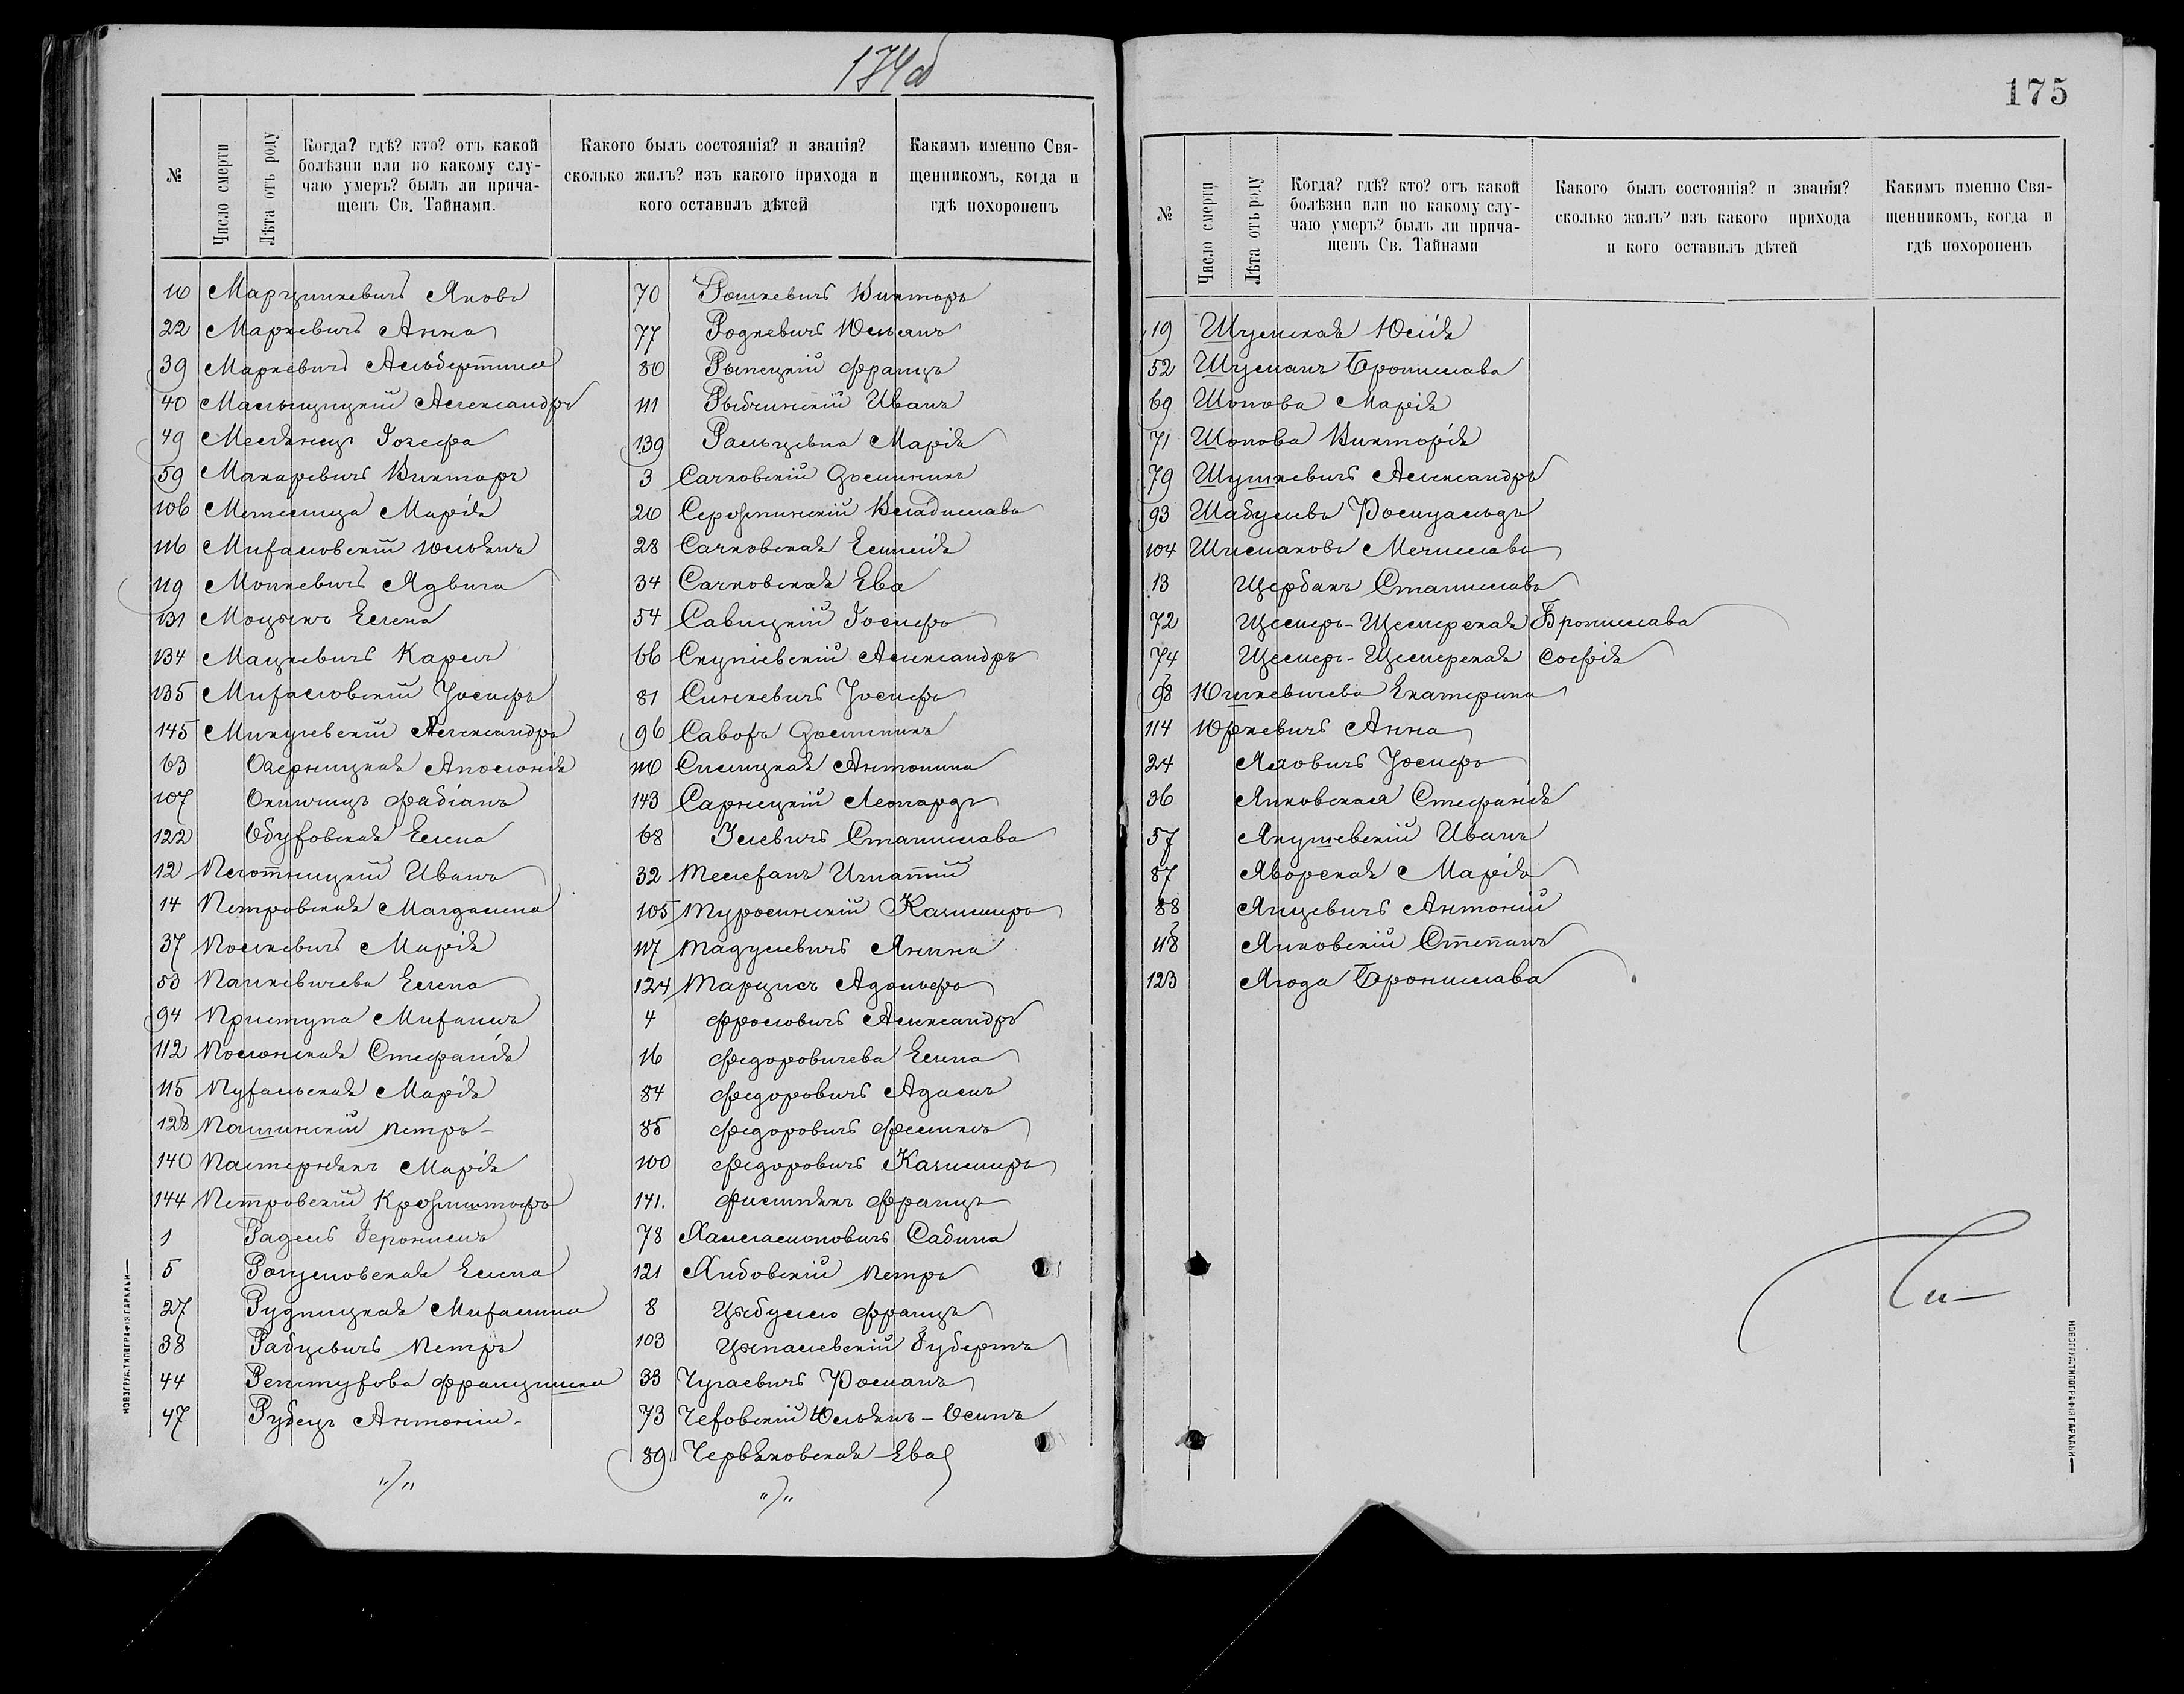 174об
№
Число смерти
Лѣта отъ роду
Когда? гдѣ? кто? отъ какой
болѣзни или по какому слу-
чаю умеръ? былъ ли прича-
щенъ Св. Тайнами.
Какого былъ состоянія? и званія?
сколько жилъ? изъ какого прихода и
кого оставилъ дѣтей
Какимъ именно Свя-
щенникомъ, когда и
гдѣ похороненъ
10 Марцинкевичъ Яковъ
22 Маркевичъ Анна
39 Маркевичъ Альбертина
40 Мальщицкій Александръ
49 Мелянец Іозефа
59 Макаревичъ Викторъ
106 Метелица Марія
116 Михаловскій Юльянъ
119 Монкевичъ Ядвига
131 Моцыкъ Елена
134 Мацкевичъ Карлъ
135 Михаловскій Іосифъ
145 Микулевскій Александръ
63 Озерницкая Аполонія
107 Окинчицъ Фабіанъ
122 Обуховская Елена
12 Плотницкій Иванъ
14 Петровская Магдалена
37 Полкевичъ Марія
53 Панкевичева Елена
94 Приступа Михаилъ
112 Полонская Стефанія
115 Пухальская Марія
128 Пашинскій Петръ
140 Пастернякъ Марія
144 Петровскій Крзыштофъ
1 Радель Іеронимъ
5 Рогумовская Елена
27 Рудницкая Михалина
38 Рабцевичъ Петръ
44 Рептухова Францишка
47 Рубецъ Антоній
"/"
70 Рошкевичъ Викторъ
77 Родкевичъ Юльянъ
80 Рымецкій Францъ
111 Рыбчинскій Иванъ
139 Ральцевна Марія
3 Сачковскій Доминикъ
20 Серафинскій Владиславъ
28 Сачковская Емилія
34 Сачковская Ева
54 Савицкій Іосифъ
66 Скупіевскій Александръ
81 Синкевичъ Іосифъ
96 Саворъ Доминикъ
110 Силицкая Антонина
143 Сарнецкій Леонардъ
68 Ілевичъ Станислава
32 Телеханъ Игнатій
105 Туросинскій Казимиръ
117 Тадулевичъ Янина
124 Тарцисъ Адольфъ
4 Фроловичъ Александръ
16 Федоровичева Елена
84 Федоровичъ Адамъ
85 Федоровичъ Феликсъ
100 Федоровичъ Казимиръ
141. Филипякъ Францъ
78 Халасиоповичъ Сабина
121 Хибовскій Петръ
8 Цыбулло Францъ
103 Цыпалевскій Губертъ
33 Чугаевичъ Романъ
73 Чеховскій Юльянъ-Осипъ
89 Червяковская Ева
"/"
175
№
Число смерти
Лѣта отъ роду
Когда? гдѣ? кто? отъ какой
болѣзни или по какому слу-
чаю умеръ? былъ ли прича-
щенъ Св. Тайнами
Какого былъ состоянія? и званія?
сколько жилъ? изъ какого прихода
и кого оставилъ дѣтей
Какимъ именно Свя-
щенникомъ, когда и
гдѣ похороненъ
19 Шумская Юлія
52 Шуманъ Бронислава
69 Шопова Марія
71 Шопова Викторія
79 Шушкевичъ Александръ
93 Шабулевъ Ромуальдъ
104 Шиманова Мечислава
13 Щербакъ Станиславъ
72 Щемеръ-Щемерская Бронислава
74 Щемеръ-Щемерская Софія
98 Юшкевичева Екатерина
114 Юркевичъ Анна
24 Яховичъ Іосифъ
36 Янковская Стефанія
57 Якушевскій Иванъ
87 Яворская Марія
88 Янцевичъ Антоній
118 Янковскій Степанъ
123 Ягода Бронислава
НОВОГРУД. ТИПОГРАФІЯ ГАРКАВИ
НОВОГРУД. ТИПОГРАФІЯ ГАРКАВИ